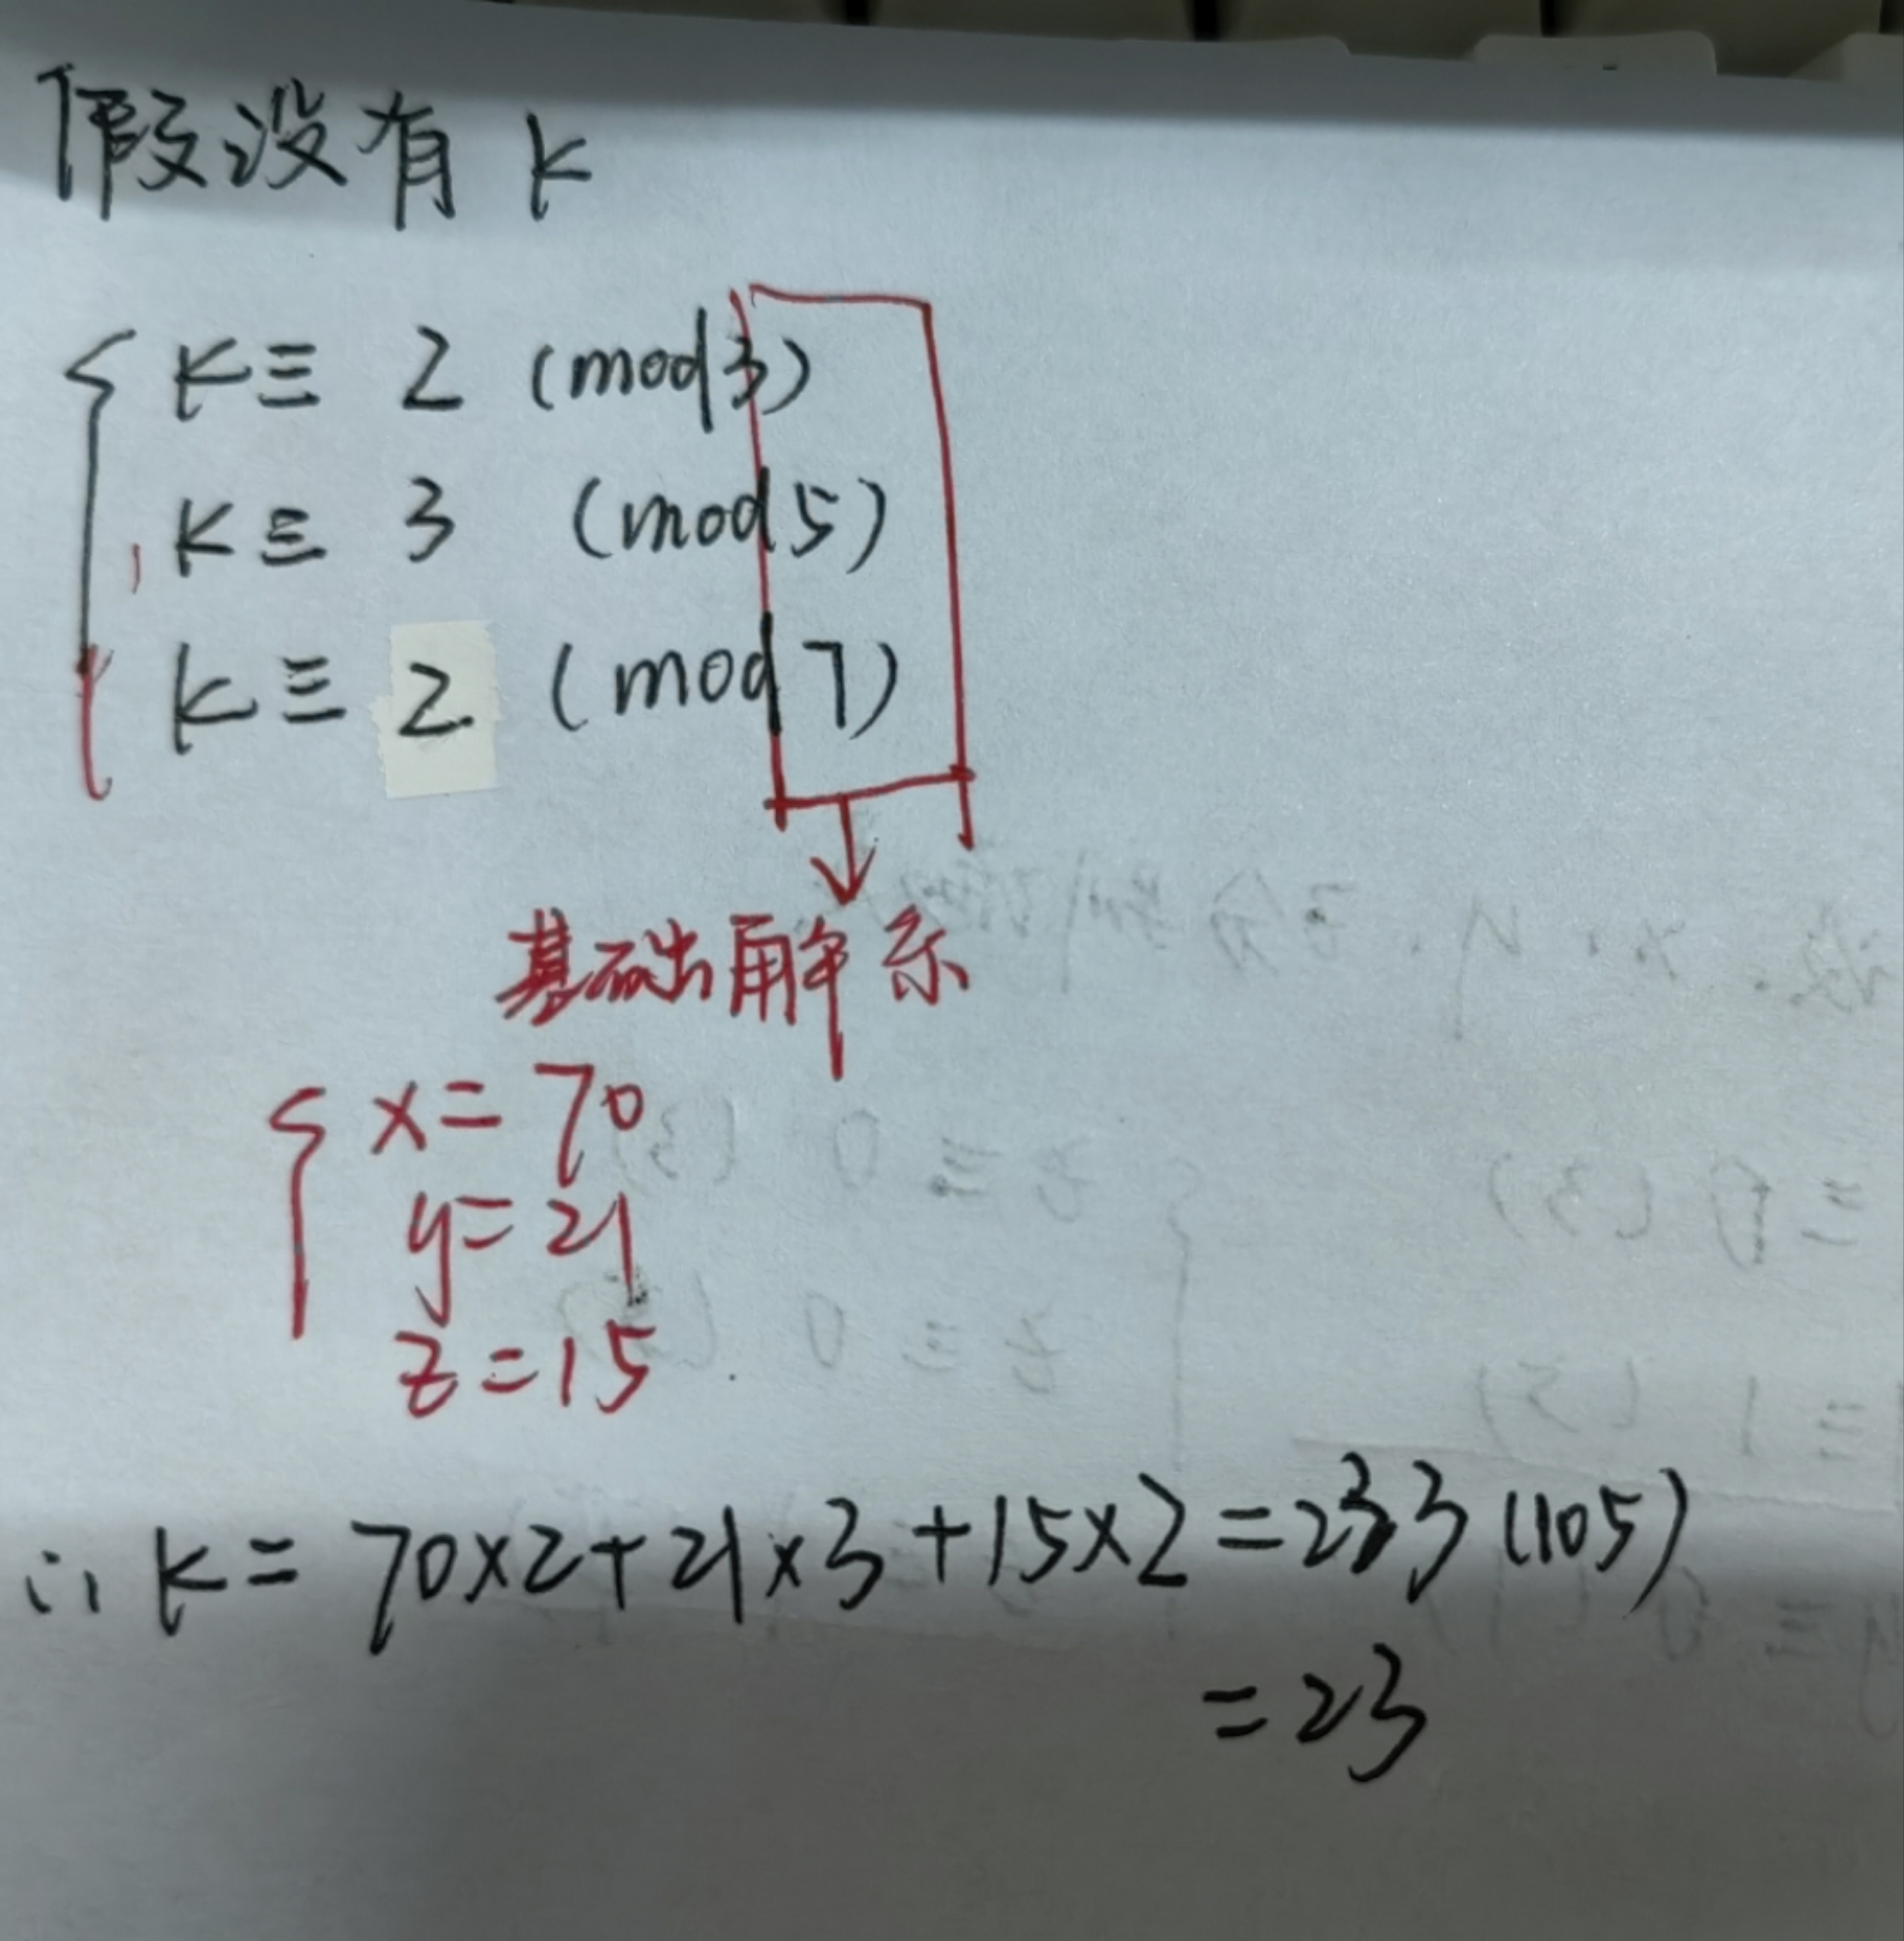 假设有 k
k ≡ 2 (mod 3)
k ≡ 3 (mod 5)
k ≡ 2 (mod 7)
基础解系
x = 70
y = 21
z = 15
∴ k = 70×2+21×3+15×2 = 233 (105)
= 23